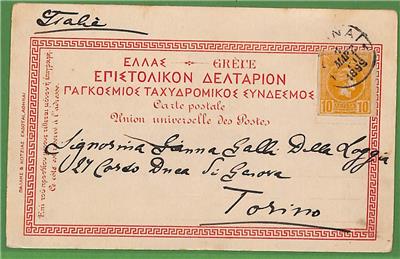 Italie
ΕΛΛΑΣ GRÈCE
ΕΠΙΣΤΟΛΙΚΟΝ ΔΕΛΤΑΡΙΟΝ
ΠΑΓΚΟΣΜΙΟΣ ΤΑΧΥΔΡΟΜΙΚΟΣ ΣΥΝΔΕΣΜΟΣ
Carte postale
Union universelle des Postes
10 10
Signorina Ganna Galli Della Loggia
27 Corso Duca Di Genova
Torino
Ce côté est réservé à l'adresse.
ΠΑΛΛΗΣ & ΚΟΤΖΙΑΣ ΕΚΔΟΤΑΙ, ΑΘΗΝΑΙ